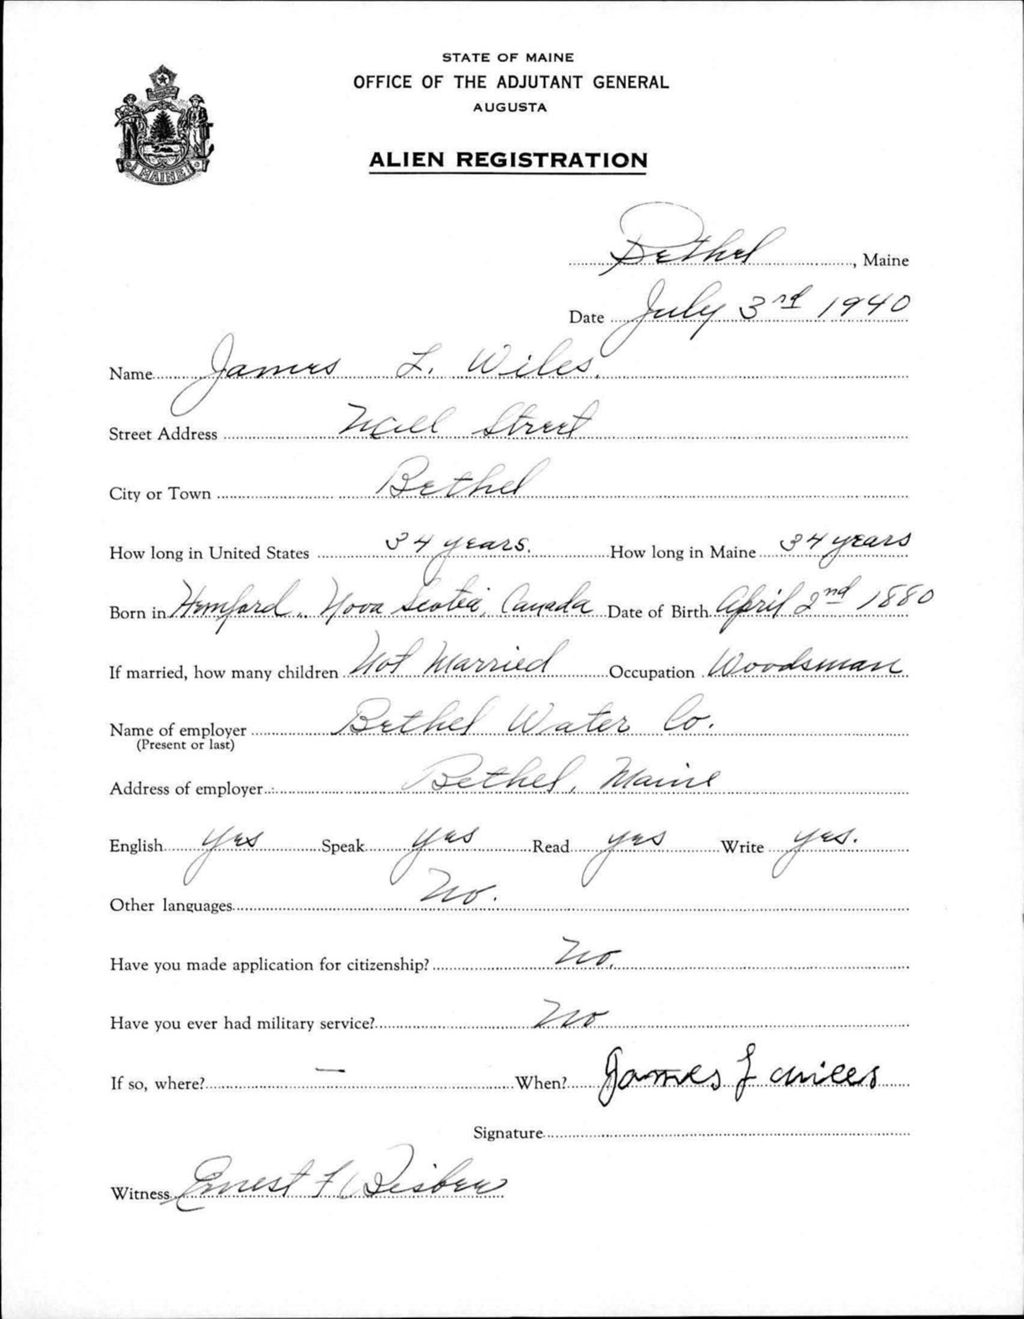 STATE OF MAINE
OFFICE OF THE ADJUTANT GENERAL
AUGUSTA
ALIEN REGISTRATION
MAINE
Bethel, Maine
Date July 3rd 1940
Name James L. Wiles.
Street Address Mill Street
City or Town Bethel
How long in United States 34 years. How long in Maine 34 years
Born in Hemford, Nova Scotia, Canada Date of Birth April 2nd 1880
If married, how many children Not Married Occupation Woodsman
Name of employer Bethel Water Co.
(Present or last)
Address of employer Bethel, Maine
English yes Speak yes Read yes Write yes.
Other languages No.
Have you made application for citizenship? No.
Have you ever had military service? No
If so, where? — When? James L wiles
Signature
Witness Ernest F Bisbee